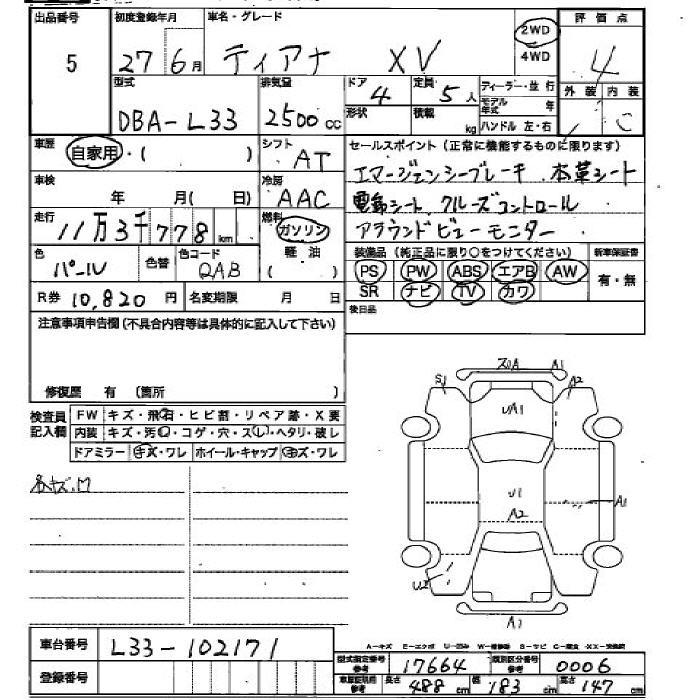 出品番号 初度登録年月 車名・グレード 2WD 4WD 評価点
5 27 6月 ティアナ XV 4
型式 排気量 ドア 定員 ディーラー・並行 外装 内装
DBA-L33 2500cc 4 5人 モデル年式 年 C
形状 積載 kg ハンドル 左・右
車歴 自家用・( ) シフト AT セールスポイント(正常に機能するものに限ります)
エマージェンシーブレーキ 本革シート
車検 年 月( 日) 冷房 AAC 電動シート クルーズコントロール
走行 11万3千778km 燃料 ガソリン 軽油 ( ) アラウンドビューモニター
色 パール 色替 色コード QAB 装備品(純正品に限り○をつけてください) 新車保証書
PS PW ABS エアB AW 有・無
R券 10,820円 名変期限 月 日 SR ナビ TV カワ
注意事項申告欄(不具合内容等は具体的に記入して下さい) 後日品
修復歴 有 (箇所 )
検査員記入欄 FW キズ・飛石・ヒビ割・リペア跡・X要
内装 キズ・汚・コゲ・穴・スレ・ヘタリ・破レ
ドアミラー キズ・ワレ ホイール・キャップ キズ・ワレ
A1
S1 A2
UA1
U1 A1
A2
U2
A1
A-キズ E-エクボ U-凹み W-補修跡 S-サビ C-腐食 XX-交換済
車台番号 L33-102171 型式指定番号 参考 17664 類別区分番号 参考 0006
登録番号 参考 長さ 488cm 幅 183cm 高さ 147cm